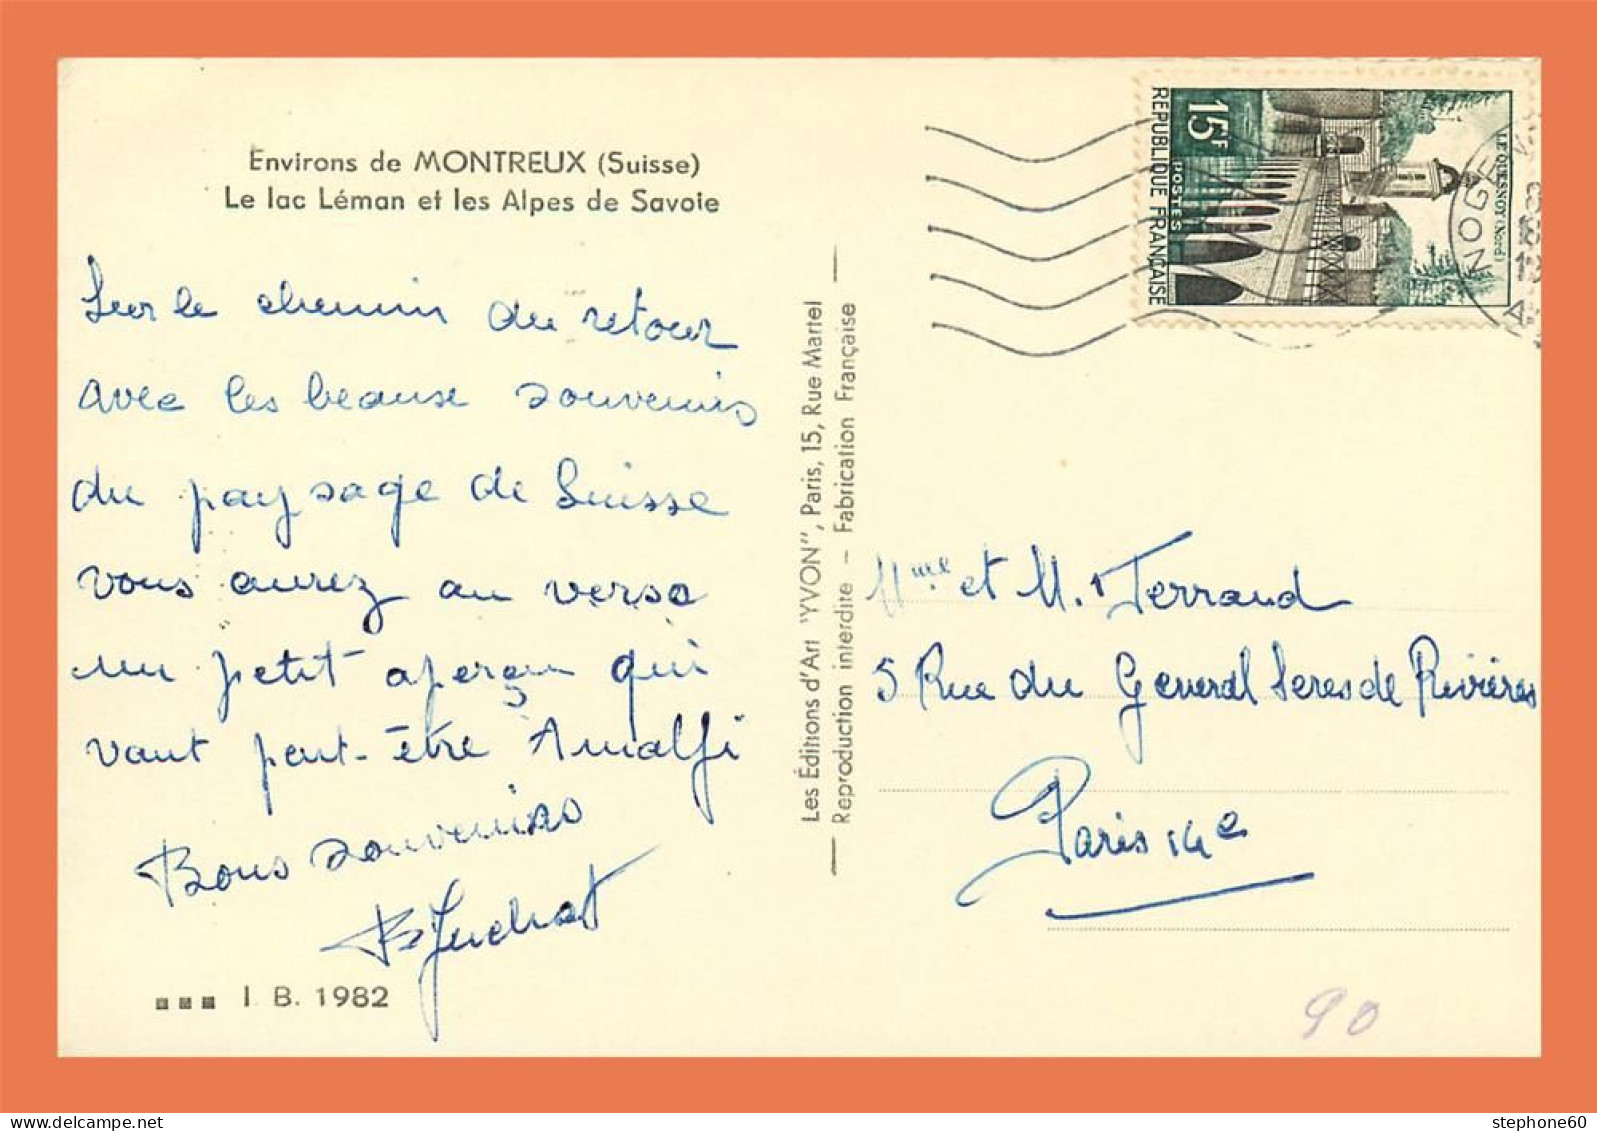 Environs de MONTREUX (Suisse)
Le lac Léman et les Alpes de Savoie
Sur le chemin du retour
avec les beaux souvenirs
du paysage de Suisse
vous aurez au verso
un petit aperçu qui
vaut peut-être Amalfi
Bons souvenirs
I. B. 1982
Les Éditions d'Art "YVON", Paris, 15, Rue Martel
Reproduction interdite – Fabrication Française
15F
POSTES
REPUBLIQUE FRANÇAISE
LE QUESNOY (Nord)
NOGE
Mme et M. Terrand
5 Rue du General Seres de Rivières
Paris 14e
90
stephone60